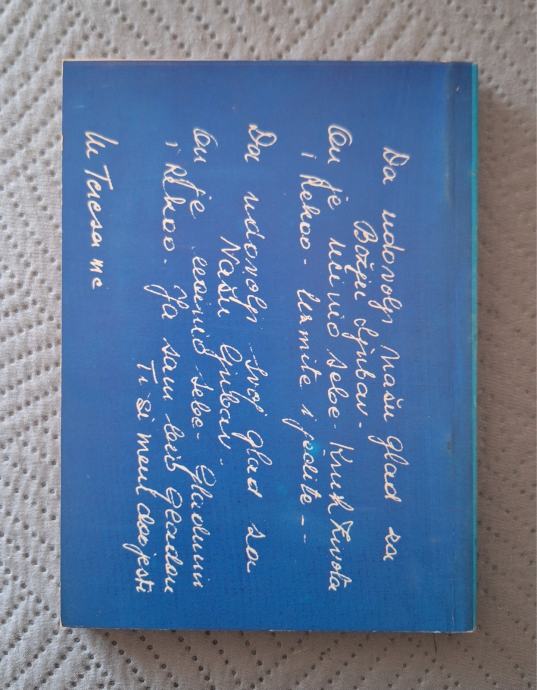 Da udovolji Našu Glad za
Božju ljubav-
On je učinio sebe- Kruh Života
i Rekao- Uzmite i jedite--
Da udovolji svoj Glad za
Našu ljubav-
On je učinio sebe- Gladnim
i Rekao- Ja sam bio Gladan
Ti si meni dao jesti
M Teresa mc